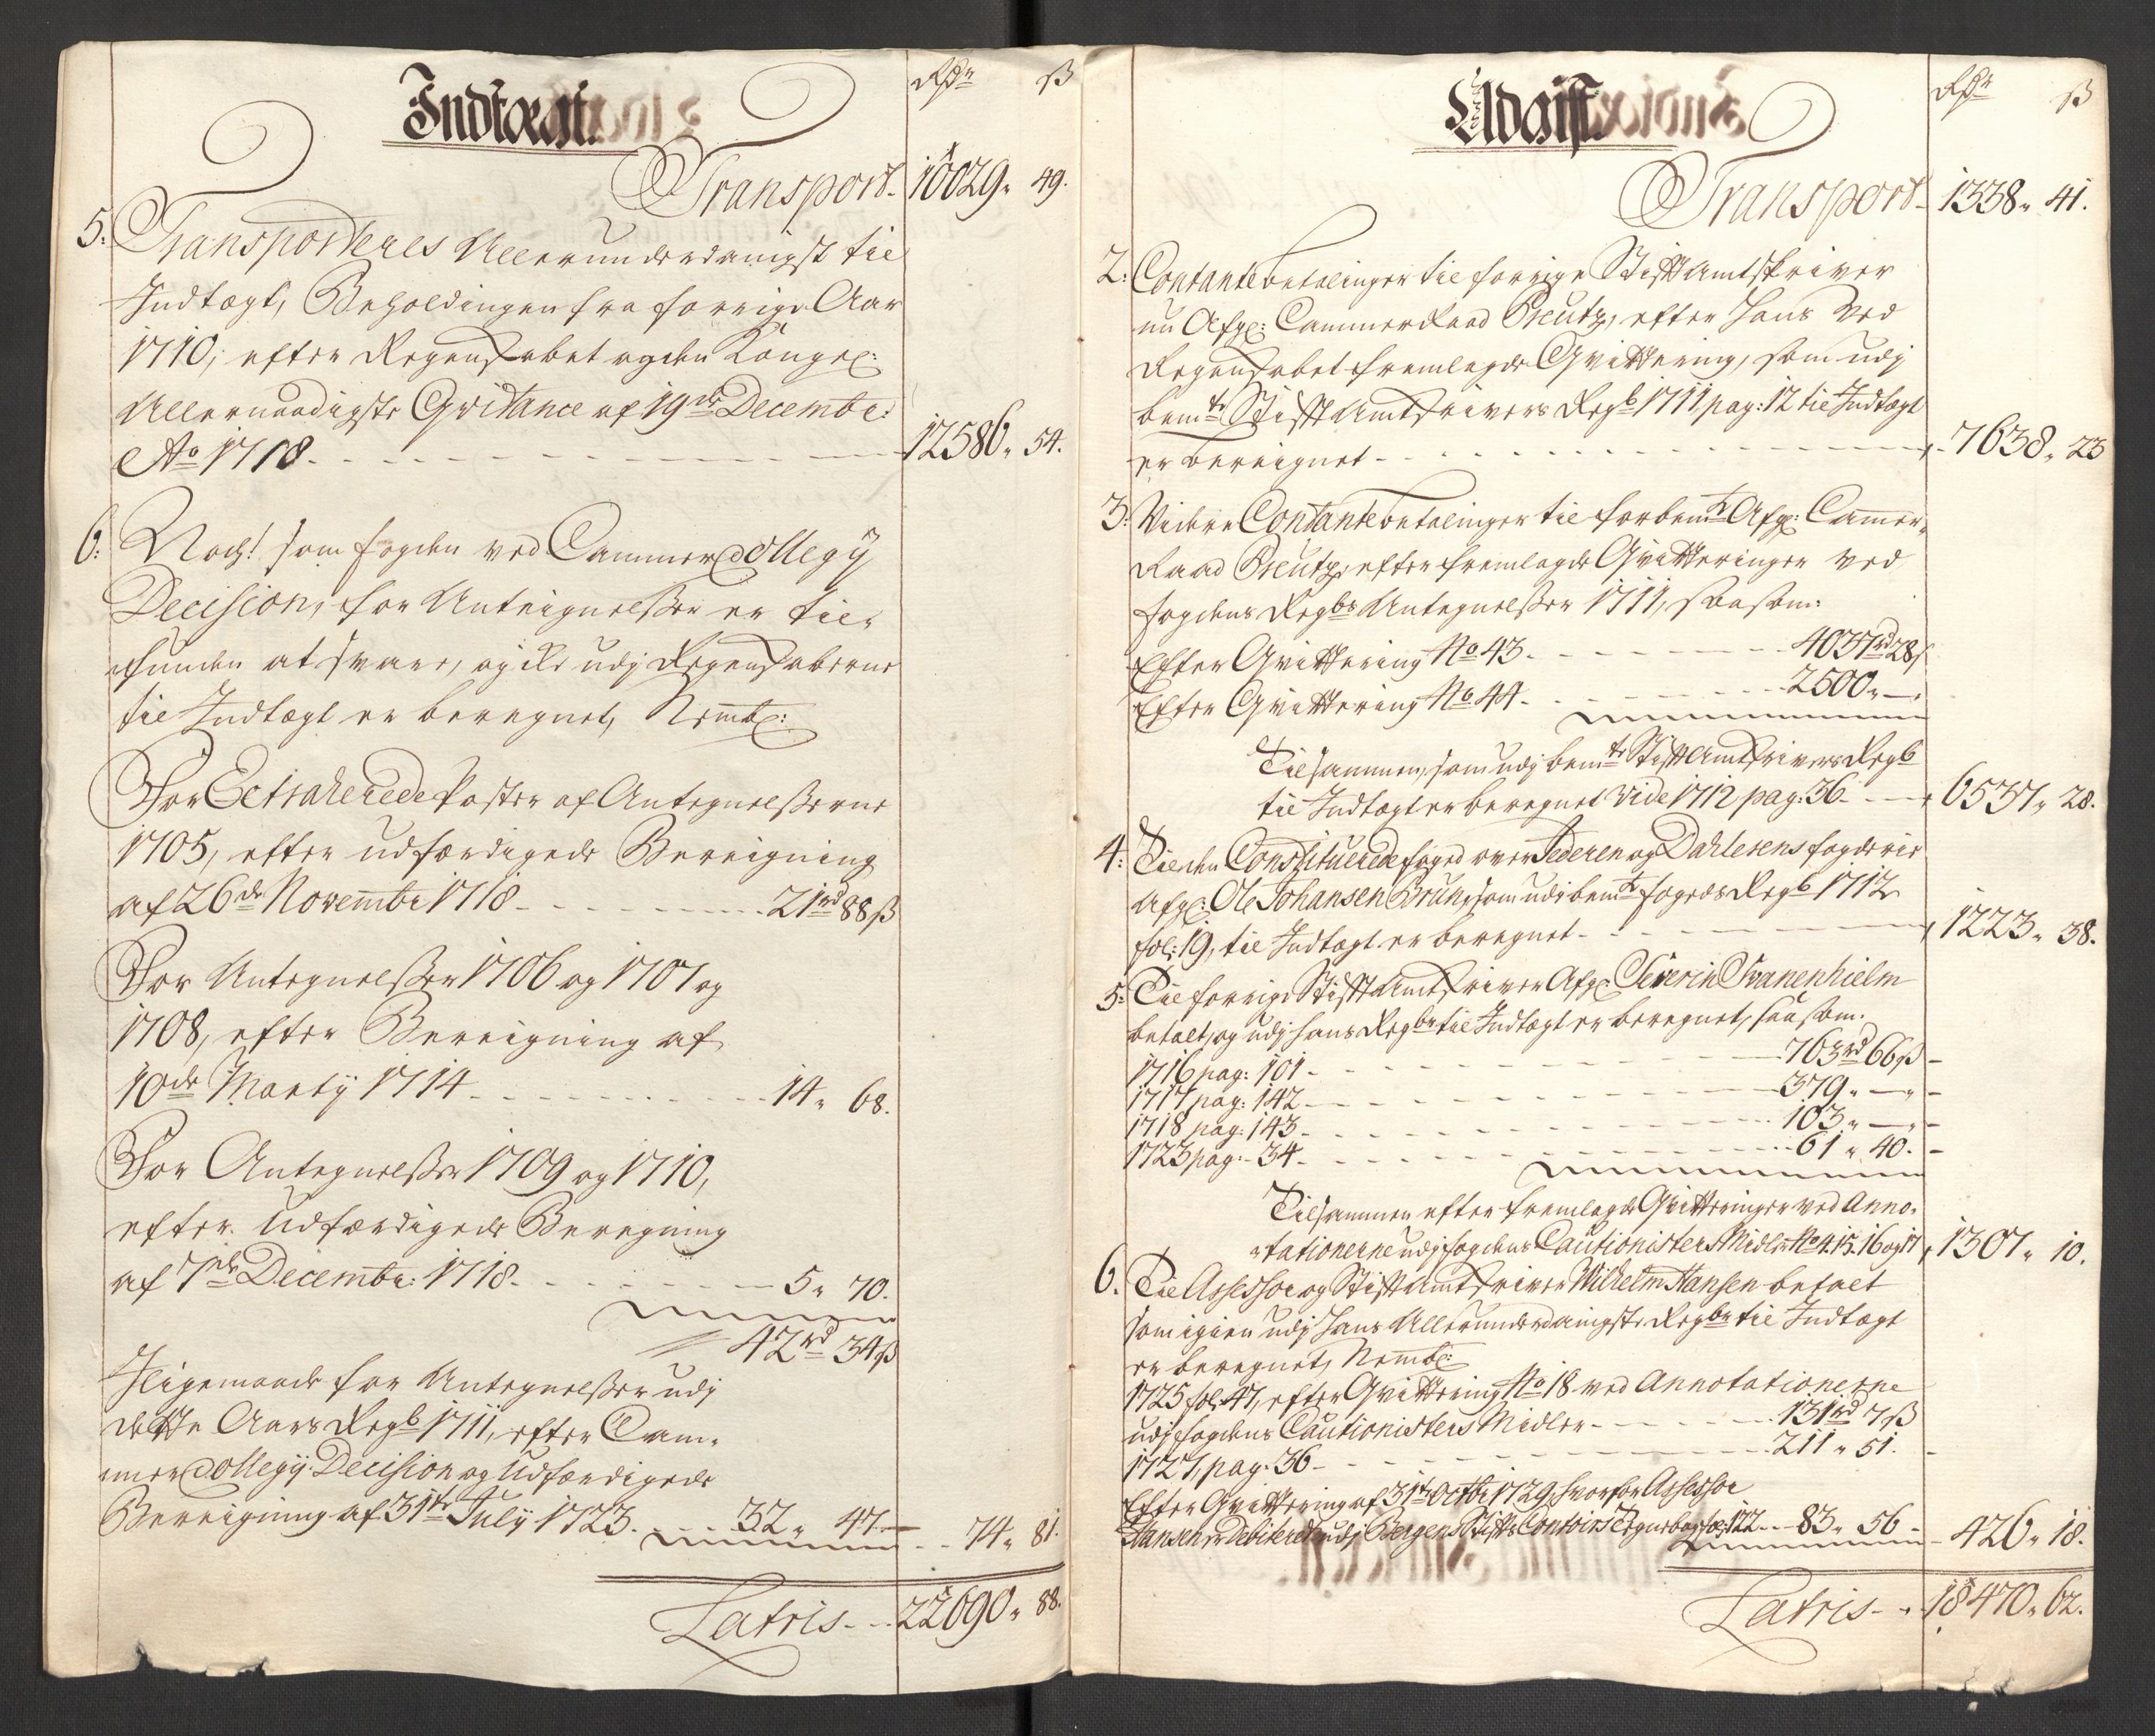 Indtægt.
Rdr ß
Transport - 10029 " 49.
5: Transporteres Allerunderdanigst til
Indtægt, Beholdingen fra forrige Aar
1710, efter Regenskabet og den Kongel:
Allernaadigste Qvitance af 19de Decembr:
Ao 1718 - 12586 " 54.
6: Noch! som fogden ved Cammer Collegij
Decision, for Anteignelsser er til-
funden at svare, og ike udj Regenskaberne
til Indtægt er beregnet, Nembl:
For Extraherede Poster af Antegnelsserne
1705, efter udfærdigede Bereigning
af 26de Novembr 1718 - 21rd 88ß
For Antegnelsser 1706 og 1707 og
1708, efter Bereigning af
10de Martij 1714 - 14 " 68.
For Antegnelsser 1709 og 1710,
efter udfærdigede Beregning
af 7de Decembr: 1718 - 5 " 70.
42rd 34ß
Iligemaade for Antegnelsser udj
dette Aars Regb 1711, efter Cam-
mer Collegij Decision og Udfærdigede
Bereigning af 31te Julij 1723 - 32 " 47 - 74 " 81.
Latris - 22690 " 88.
Udgift.
Rdr ß
Transport - 1338 " 41.
2: Contante betalinger til forrige Stiftamtskriver
nu Afg: Cammerraad Creutz, efter hans ved
Regenskabet fremlagde Qvittering, som udj
bemte Stiftamtskrivers Regb 1711, pag: 12 til Indtægt
er bereignet - 7638 " 23
3: Videre Contante betalinger til forbemte Afg: Camer-
Raad Creutz, efter fremlagde Qvitteringer ved
fogdens Regbs Antegnelsser 1711, saasom:
Efter Qvittering No 43 - 4037rd 28ß
Efter Qvittering No 44 - 2500 " -
Tilsammen, som udj bemte Stiftamtskrivers Regb
til Indtægt er beregnet vide 1712 pag: 36 - 6537 " 28.
4: Til den Constituerede foged over Jederen og Dahlerens fogderie
Afg: Ole Johansen Bruun, som udj bemte fogeds Regb 1712
fol: 19, til Indtægt er beregnet - 1223 " 38.
5: Til forrige Stiftamtskriver Afg: Severin Svanenhielm
betalt, og udj hans Regbr til Indtægt er beregnet, saasom.
1716 pag: 101 - 763rd 66ß -
1717 pag: 142 - 379 " - " -
1718 pag: 143 - 103 " - " -
1723 pag: 34 - 61 " 40. -
Tilsammen efter fremlagde Qvitteringer ved Anno-
tationerne udj fogdens Cautionisters Midler No 4. 15. 16 og 17 - 1307 " 10.
6. Til Assessor og Stiftamtskriver Wilhelm Hansen betalt
som igien udj hans Allerunderdanigste Regbr til Indtægt
er beregnet, Nembl:
1725 fol: 47, efter Qvittering No 18 ved Annotationerne
udj fogdens Cautionisters Midler - 131rd 7ß
1727, pag: 36 - 211 " 51. -
Efter Qvittering af 31te Octbr 1729, hvorfor Assessor
Hansen er Debiteret udj Bergens Stifts Contoirs bog fol: 122 - 83 " 56 - 426 " 18.
Latris - 18470 " 62.